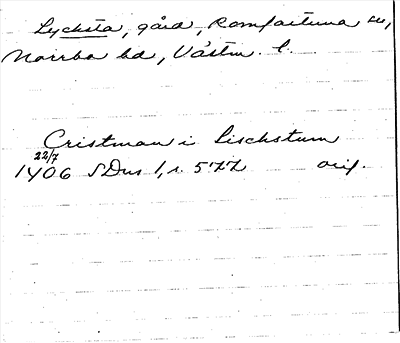 Lycksta, gård, Romfartuna sn,
Norrbo hd, Västm. l.
Cristman i Lischstum
22/7
1406 SDns 1, s. 577 orig.